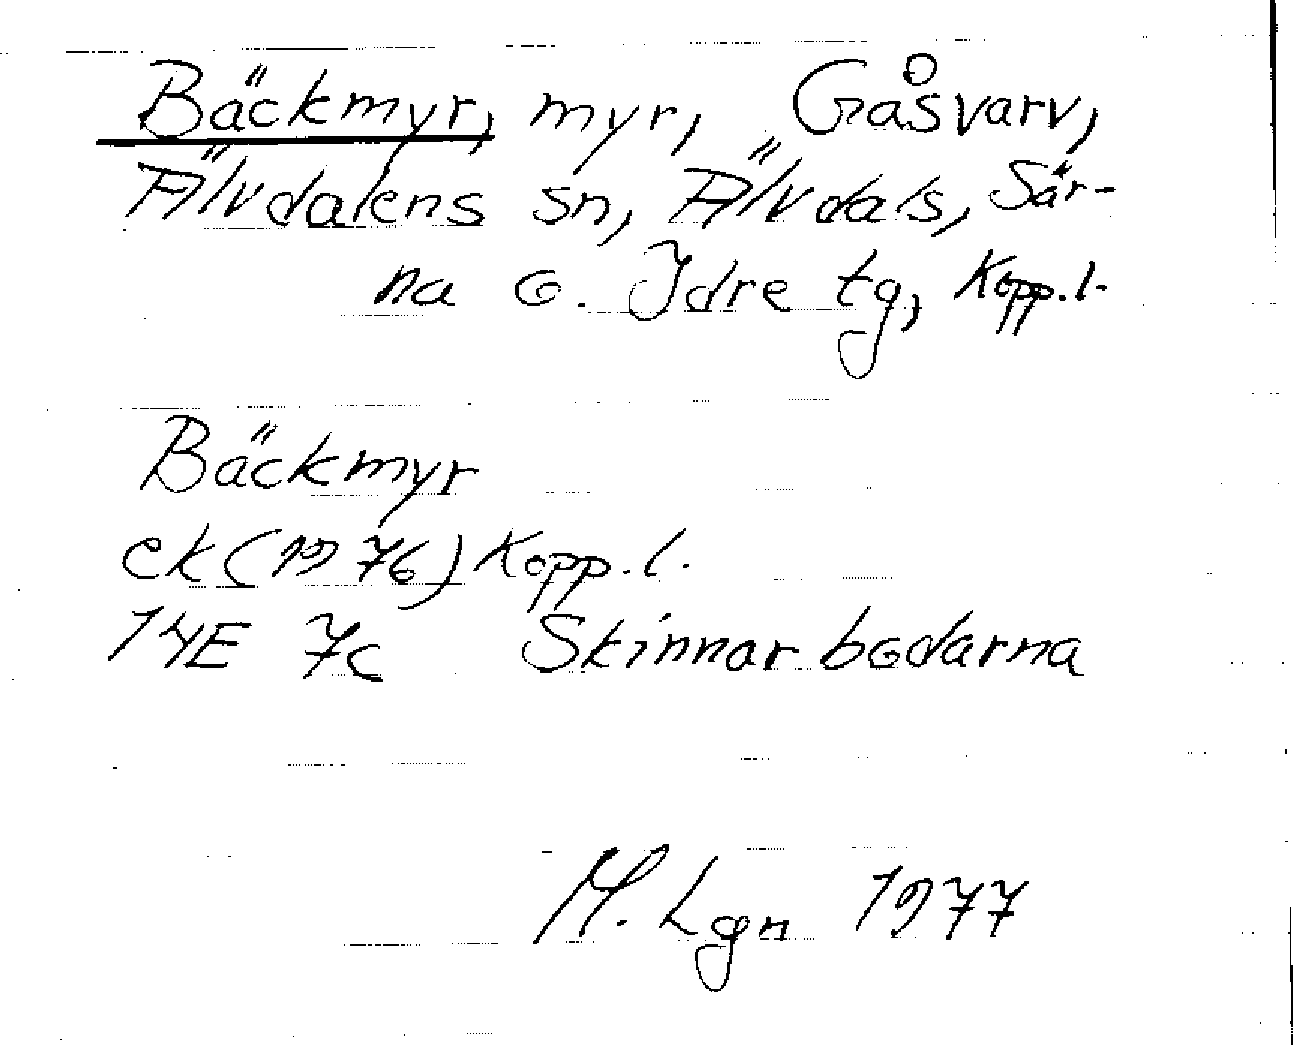 Bäckmyr, myr, Gåsvarv,
Älvdalens sn, Älvdals, Sär-
na o. Idre tg, Kopp. l.
Bäckmyr
ek (1976) Kopp. l.
14E 7c Skinnarbodarna
M. Lgn 1977